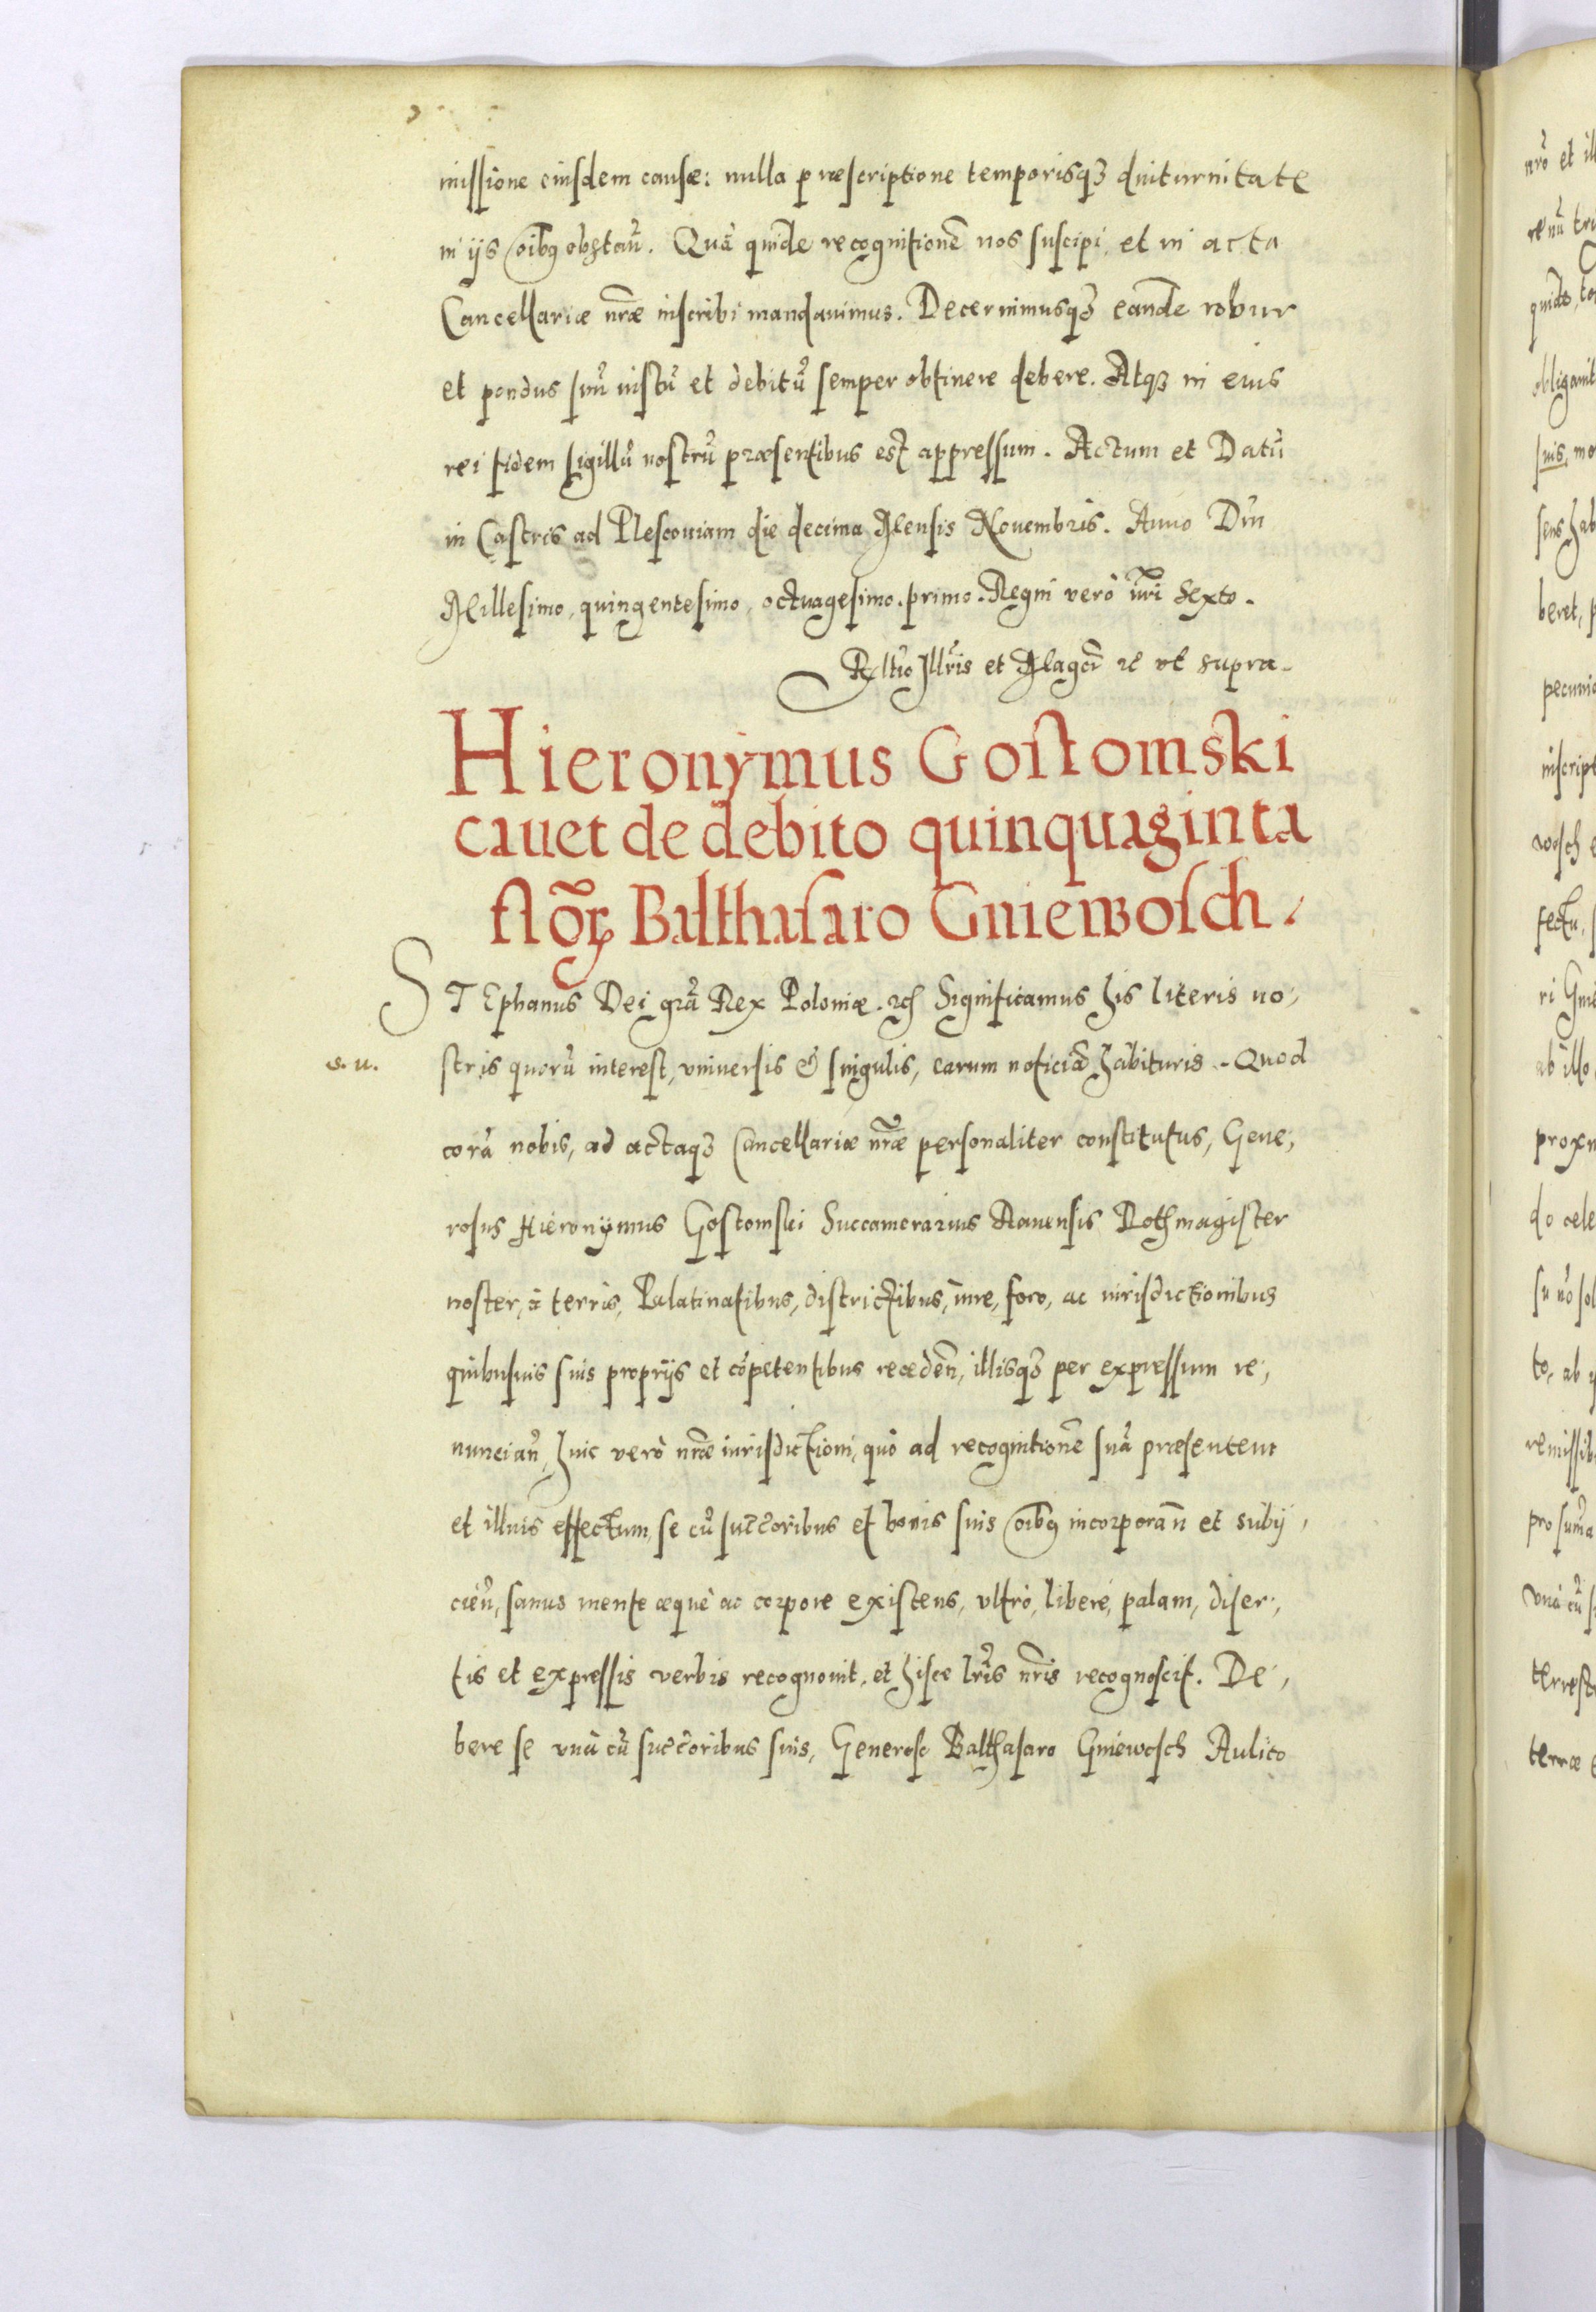 missione eiusdem causæ: nulla præscriptione temporisq3 diuturnitate
in ijs oĩbq obstan̄. Quã quidẽ recognitionẽ nos suscipi et in acta
Cancellariæ nr̃æ inscribi mandauimus. Decernimusq3 eandẽ robur
et pondus suũ iustũ et debitũ semper obtinere debere. Atq3 in eius
rei fidem sigillũ nostrũ præsentibus est appressum. Actum et Datũ
in Castris ad Plescouiam die decima Mensis Nouembris. Anno Dñi
Millesimo, quingentesimo, octuagesimo. primo. Regni verò nr̃i Sexto.
Rltio Jllr̃is et Magci ꝛc vt supra.
Hieronymus Gostomski
cauet de debito quinquaginta
floꝝ Balthasaro Gniewosch.
STEphanus Dei grã Rex Poloniæ. ꝛc Significamus his literis no,
s. u.
stris quorũ interest, vniuersis & singulis, earum noticiã habituris. Quod
corã nobis, ad actaq3 Cancellariæ nr̃æ personaliter constitutus, Gene,
rosus Hieronymus Gostomski Succamerarius Rauensis Rothmagister
noster, à terris, Palatinatibus, districtibus, iure, foro, ac iurisdictionibus
quibusuis suis proprijs et cõpetentibus recedeñ, illisq3 per expressum re,
nunciañ, huic verò nr̃æ iurisdictioni, quò ad recognitionẽ suã præsentem
et illius effectum, se cũ succ̃oribus et bonis suis oĩbq incorporañ et subij,
cieñ, sanus mente æquè ac corpore existens, vltrò, liberè, palam, diser,
tis et expressis verbis recognouit, et hisce lr̃is nr̃is recognoscit. De,
bere se vnà cũ succ̃oribus suis, Generoso Balthasaro Gniewosch Aulico